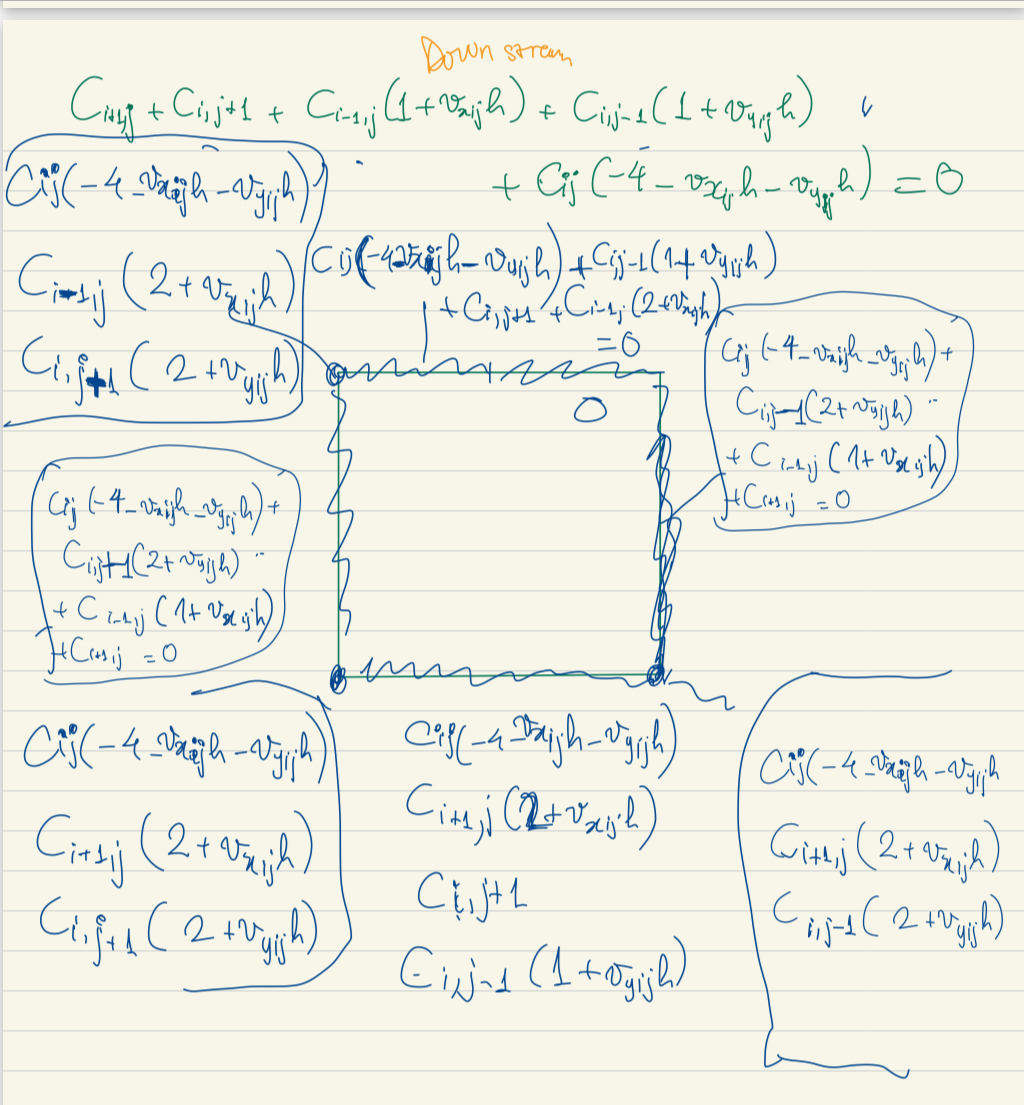 Down stream
C_{i+1,j} + C_{i,j+1} + C_{i-1,j}(1+v_{xij}h) + C_{i,j-1}(1+v_{yij}h)
+ C_{ij}(-4 - v_{xij}h - v_{yij}h) = 0
C_{ij}(-4 - v_{xij}h - v_{yij}h)
C_{i-1,j}(2+v_{xij}h)
C_{i,j+1}(2+v_{yij}h)
C_{ij}(-4-v_{xij}h - v_{yij}h) + C_{i,j-1}(1+v_{yij}h)
+ C_{i,j+1} + C_{i-1,j}(2+v_{xij}h)
= 0
C_{ij}(-4-v_{xij}h-v_{yij}h) +
C_{i,j-1}(2+v_{yij}h)
+ C_{i-1,j}(1+v_{xij}h)
+C_{i+1,j} = 0
0
C_{ij}(-4-v_{xij}h-v_{yij}h) +
C_{i,j+1}(2+v_{yij}h)
+ C_{i-1,j}(1+v_{xij}h)
+C_{i+1,j} = 0
C_{ij}(-4-v_{xij}h-v_{yij}h)
C_{i+1,j}(2+v_{xij}h)
C_{i,j+1}(2+v_{yij}h)
C_{ij}(-4-v_{xij}h-v_{yij}h)
C_{i+1,j}(2+v_{xij}h)
C_{i,j+1}
C_{i,j-1}(1+v_{yij}h)
C_{ij}(-4-v_{xij}h-v_{yij}h
C_{i+1,j}(2+v_{xij}h)
C_{i,j-1}(2+v_{yij}h)